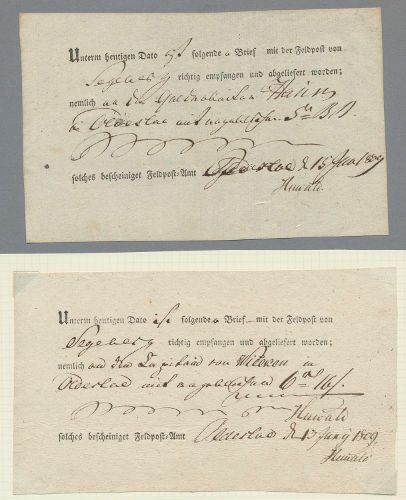 Unterm heutigen Dato ist folgende Brief mit der Feldpost von
Segeberg richtig empfangen und abgeliefert worden;
nemlich an den
in Oldesloe mit angeblichen
solches bescheiniget Feldpost-Amt Oldesloe d 15 Juny 1809
Huwald
Unterm heutigen Dato ist folgende Brief mit der Feldpost von
Segeberg richtig empfangen und abgeliefert worden;
nemlich an den Capitain von in
Oldesloe mit angeblichen 16 ß.
Huwald
solches bescheiniget Feldpost-Amt Oldesloe d 13 Juny 1809
Huwald